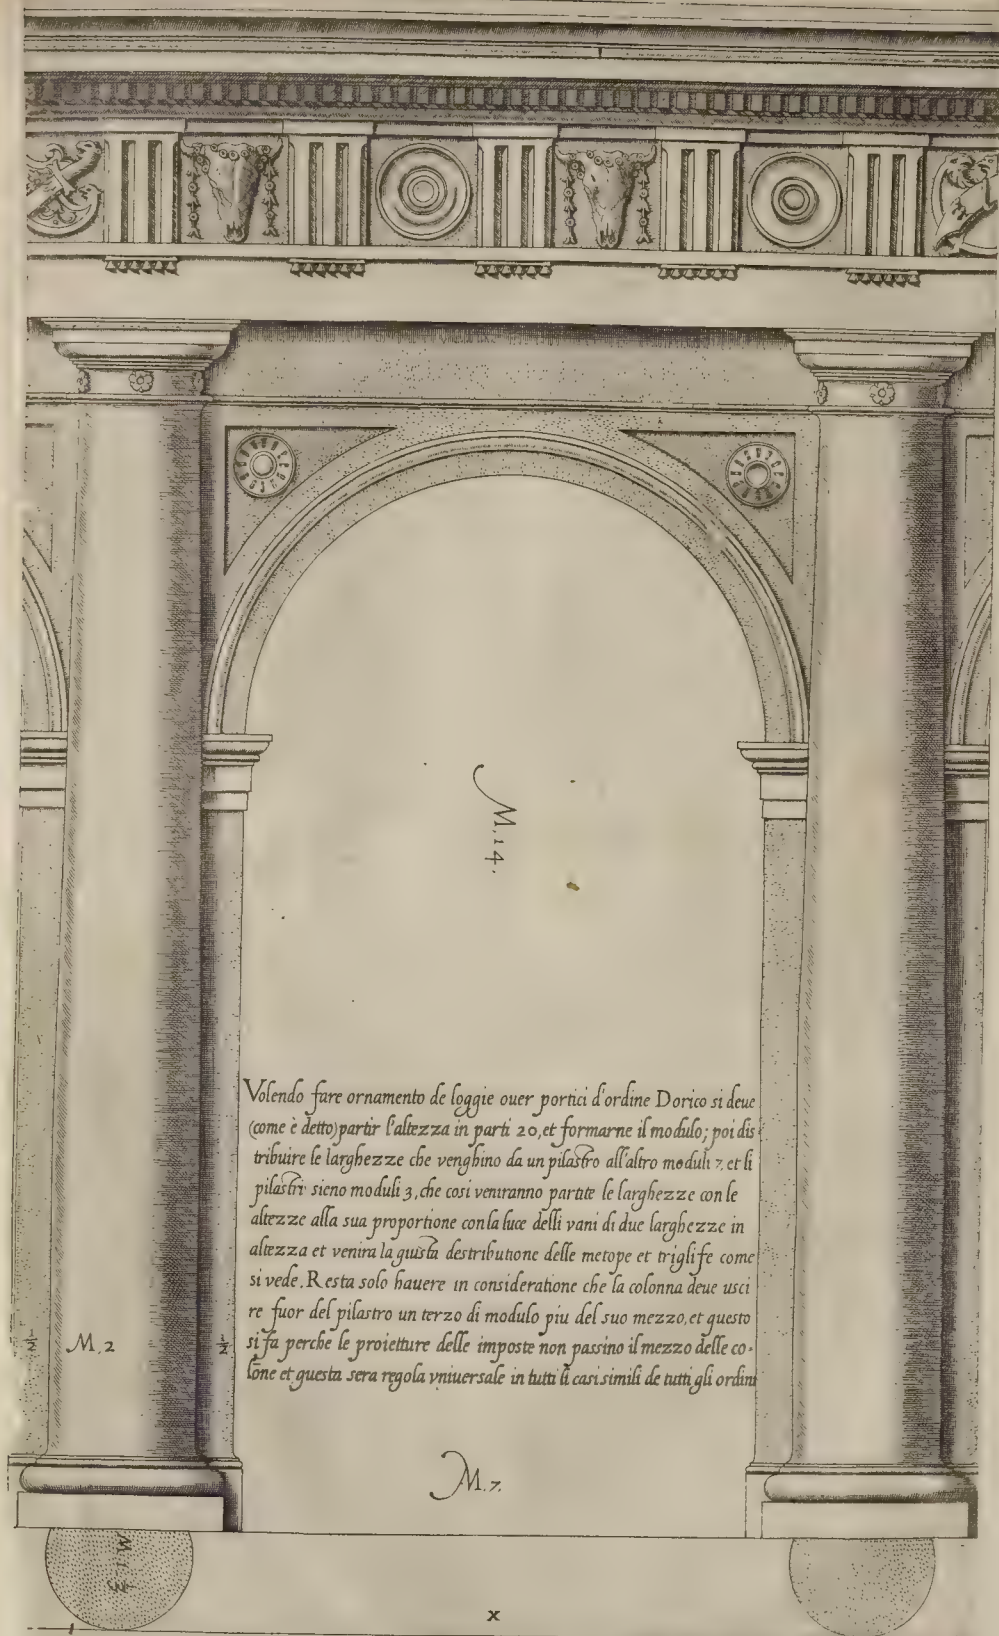 M.14.
Volendo fare ornamento de loggie ouer portici d'ordine Dorico si deue
(come è detto) partir l'altezza in parti 20, et formarne il modulo; poi dis
tribuire le larghezze che venghino da un pilastro all'altro moduli 7, et li
pilastri sieno moduli 3, che cosi veniranno partite le larghezze con le
altezze alla sua proportione con la luce delli vani di due larghezze in
altezza et venira la giusta destributione delle metope et triglife come
si vede. Resta solo hauere in consideratione che la colonna deue usci
re fuor del pilastro un terzo di modulo piu del suo mezzo, et questo
si fa perche le proietture delle imposte non passino il mezzo delle co-
lōne et questa sera regola vniuersale in tutti li casi simili de tutti gli ordini
½ M.2 ½
M.7.
X